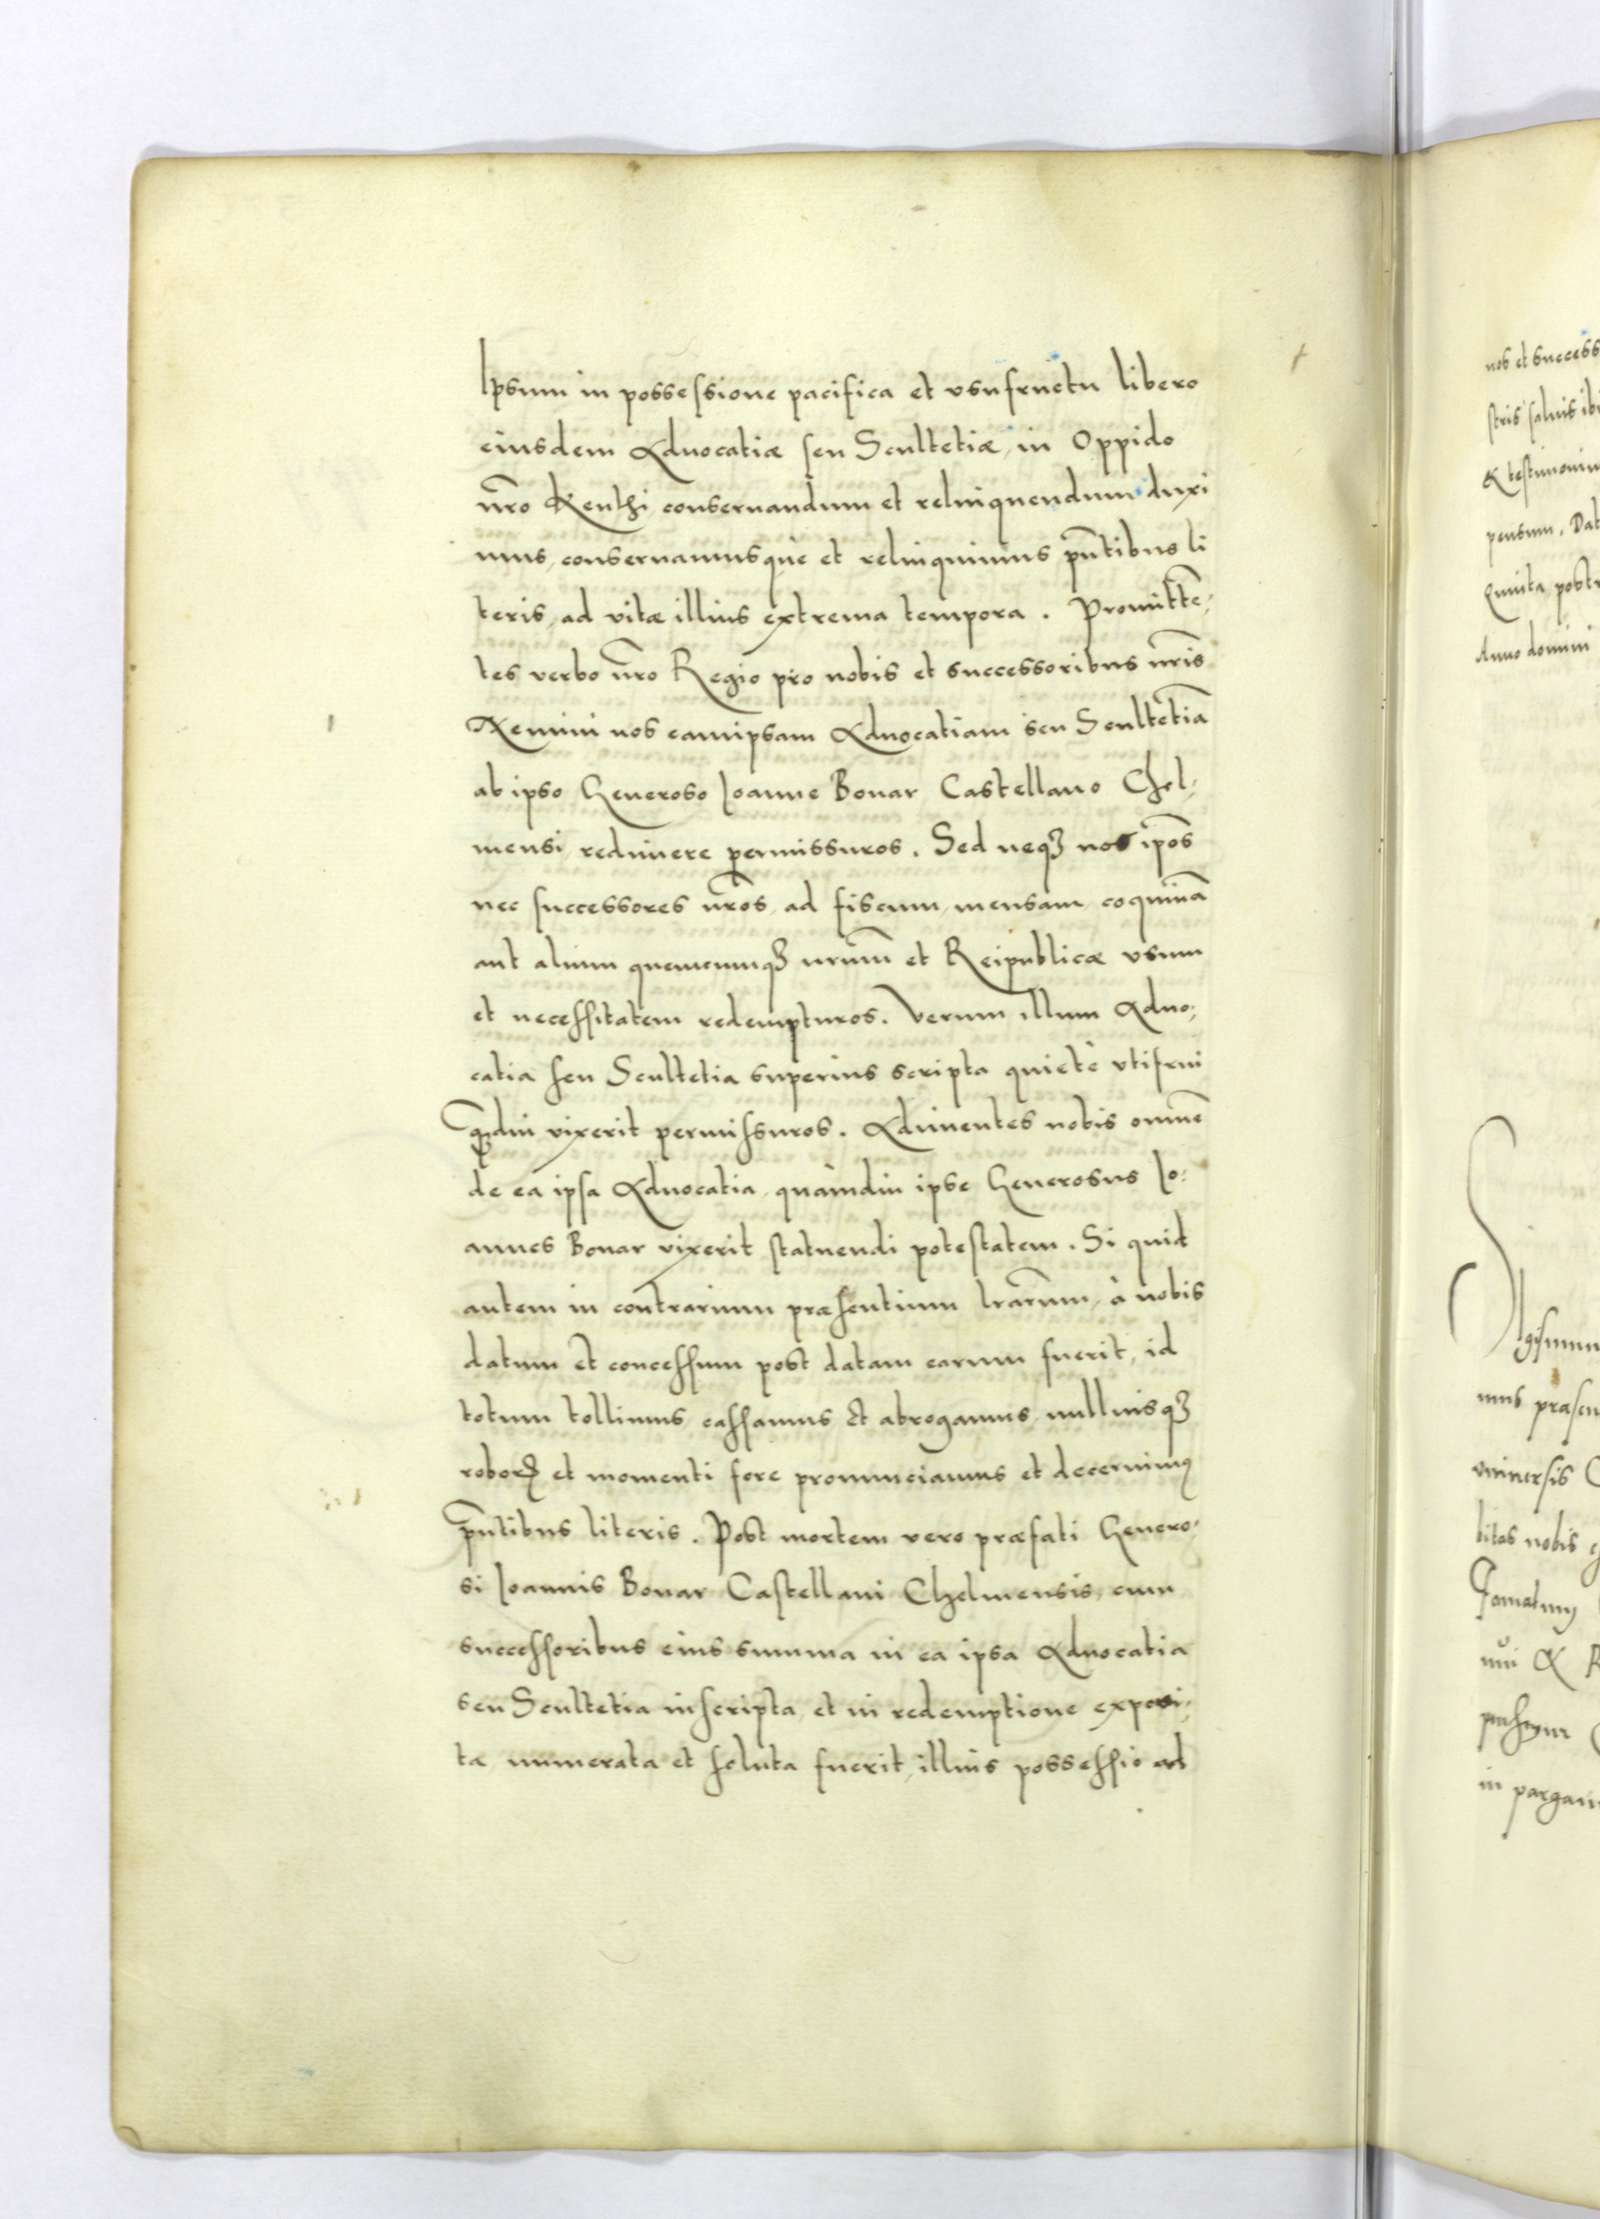 Ipsum in possessione pacifica et vsufructu libero
eiusdem Aduocatiæ seu Scultetiæ, in Oppido
nr̃o Kenthi conseruandum et relinquendum duxi
mus, conseruamusque et relinquimus pñtibus li
teris, ad vitæ illius extrema tempora. Promittẽ,
tes verbo nr̃o Regio pro nobis et successoribus nr̃is
Nemini nos eamipsam Aduocatiam seu Scultetiã
ab ipso Generoso Ioanne Bonar Castellano Chel,
mensi, redimere permissuros. Sed neqȝ nos ip̃os
nec successores nr̃os, ad fiscum, mensam, coquinã
aut alium quemcumqȝ nrum̃ et Reipublicæ vsum
et necessitatem redempturos. Verum illum Aduo,
catia seu Scultetia superius scripta quietè vtifrui
q̃diu vixerit permissuros. Adimentes nobis omnẽ
de ea ipsa Aduocatia, quàmdiu ipse Generosus Io,
annes Bonar vixerit statuendi potestatem. Si quid
autem in contrarium præsentium lrarum̃, à nobis
datum et concessum post datam earum fuerit, id
totum tollimus, cassamus et abrogamus, nulliusqȝ
roborꝭ et momenti fore pronunciamus et decernimꝰ
pñtibus literis. Post mortem vero præfati Genero,
si Ioannis Bonar Castellani Chelmensis, cum
successoribus eius summa in ea ipsa Aduocatia
seu Scultetia inscripta, et in redemptione exposi,
ta numerata et soluta fuerit, illius possessio ad
nos et success
stris saluis ibi
Et testimonium
pensum. Dat
Quinta post
Anno domini
Sigismun
mus præsen
vniuersis
bitas nobis
in pargam